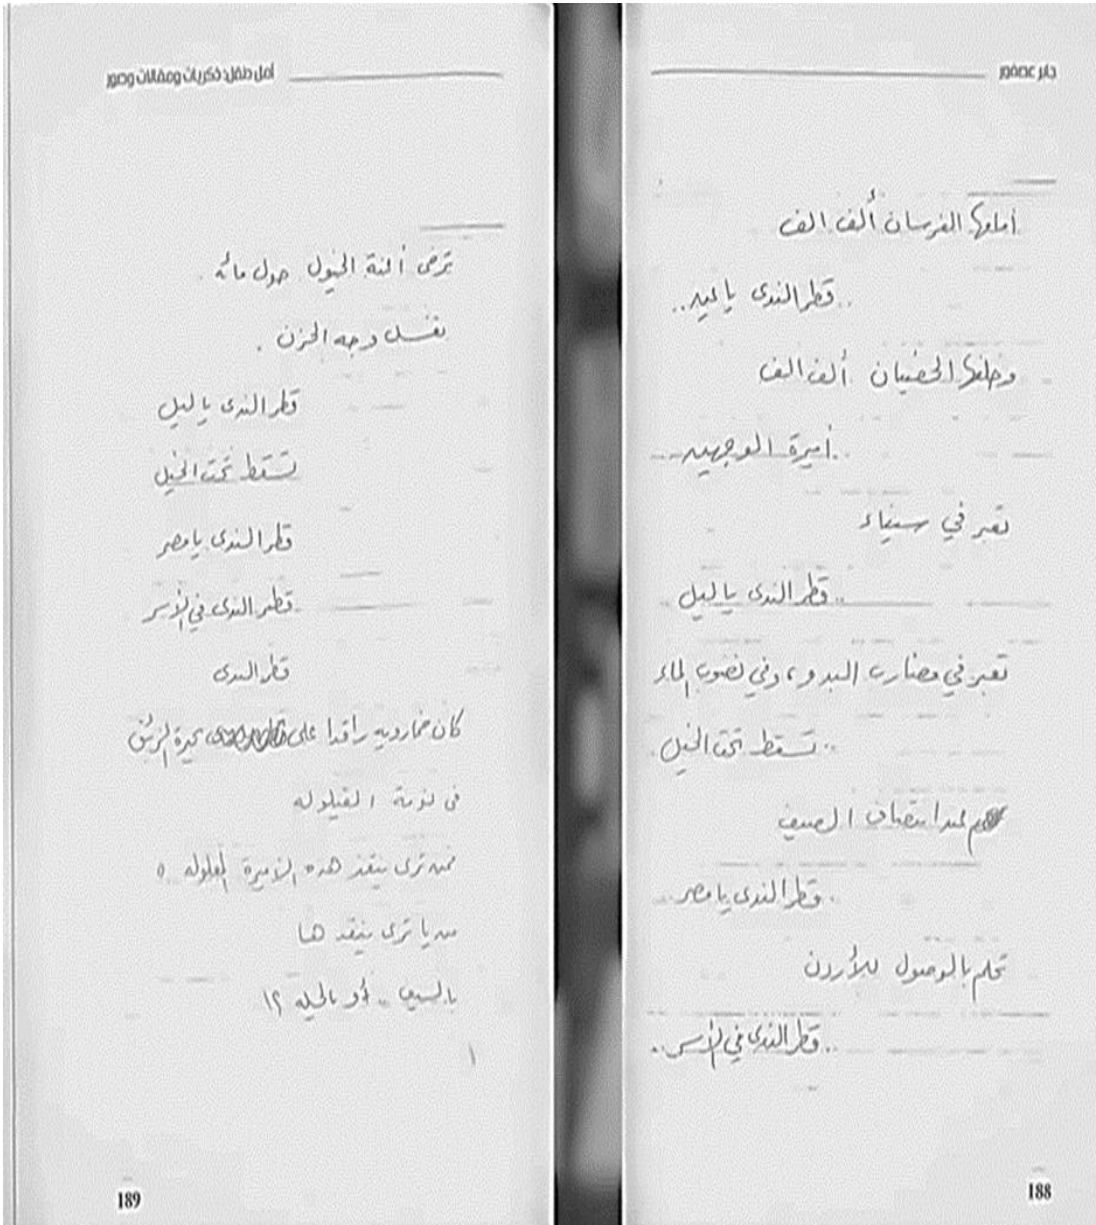 جابر عصفور
أمامها الفرسان ألف ألف
..قطر الندى يا عين..
وخلفها الخصيان ألف ألف
..أميرة الوجهين..
تعبر في سيناء
..قطر الندى يا ليل..
تعبر في مضارب البدو، وفي نضوب الماء
..تسقط تحت الخيل..
عند انتصاف الصيف
..قطر الندى يا مصر..
تحلم بالوصول للأردن
..قطر الندى في الأسر..
188
أمل دنقل: ذكريات ومقالات وصور
ترخى أعنة الخيول حول مائه
تغسل وجه الحزن.
قطر الندى يا ليل
تسقط تحت الخيل
قطر الندى يا مصر
قطر الندى في الأسر
قطر الندى
كان خمارويه راقدا على بحيرة الزئبق
فى نومة القيلوله
فمن ترى ينقذ هذه الأميرة المغلوله ؟
من يا ترى ينقذها
بالسيف .. أو بالحيله ؟!
189